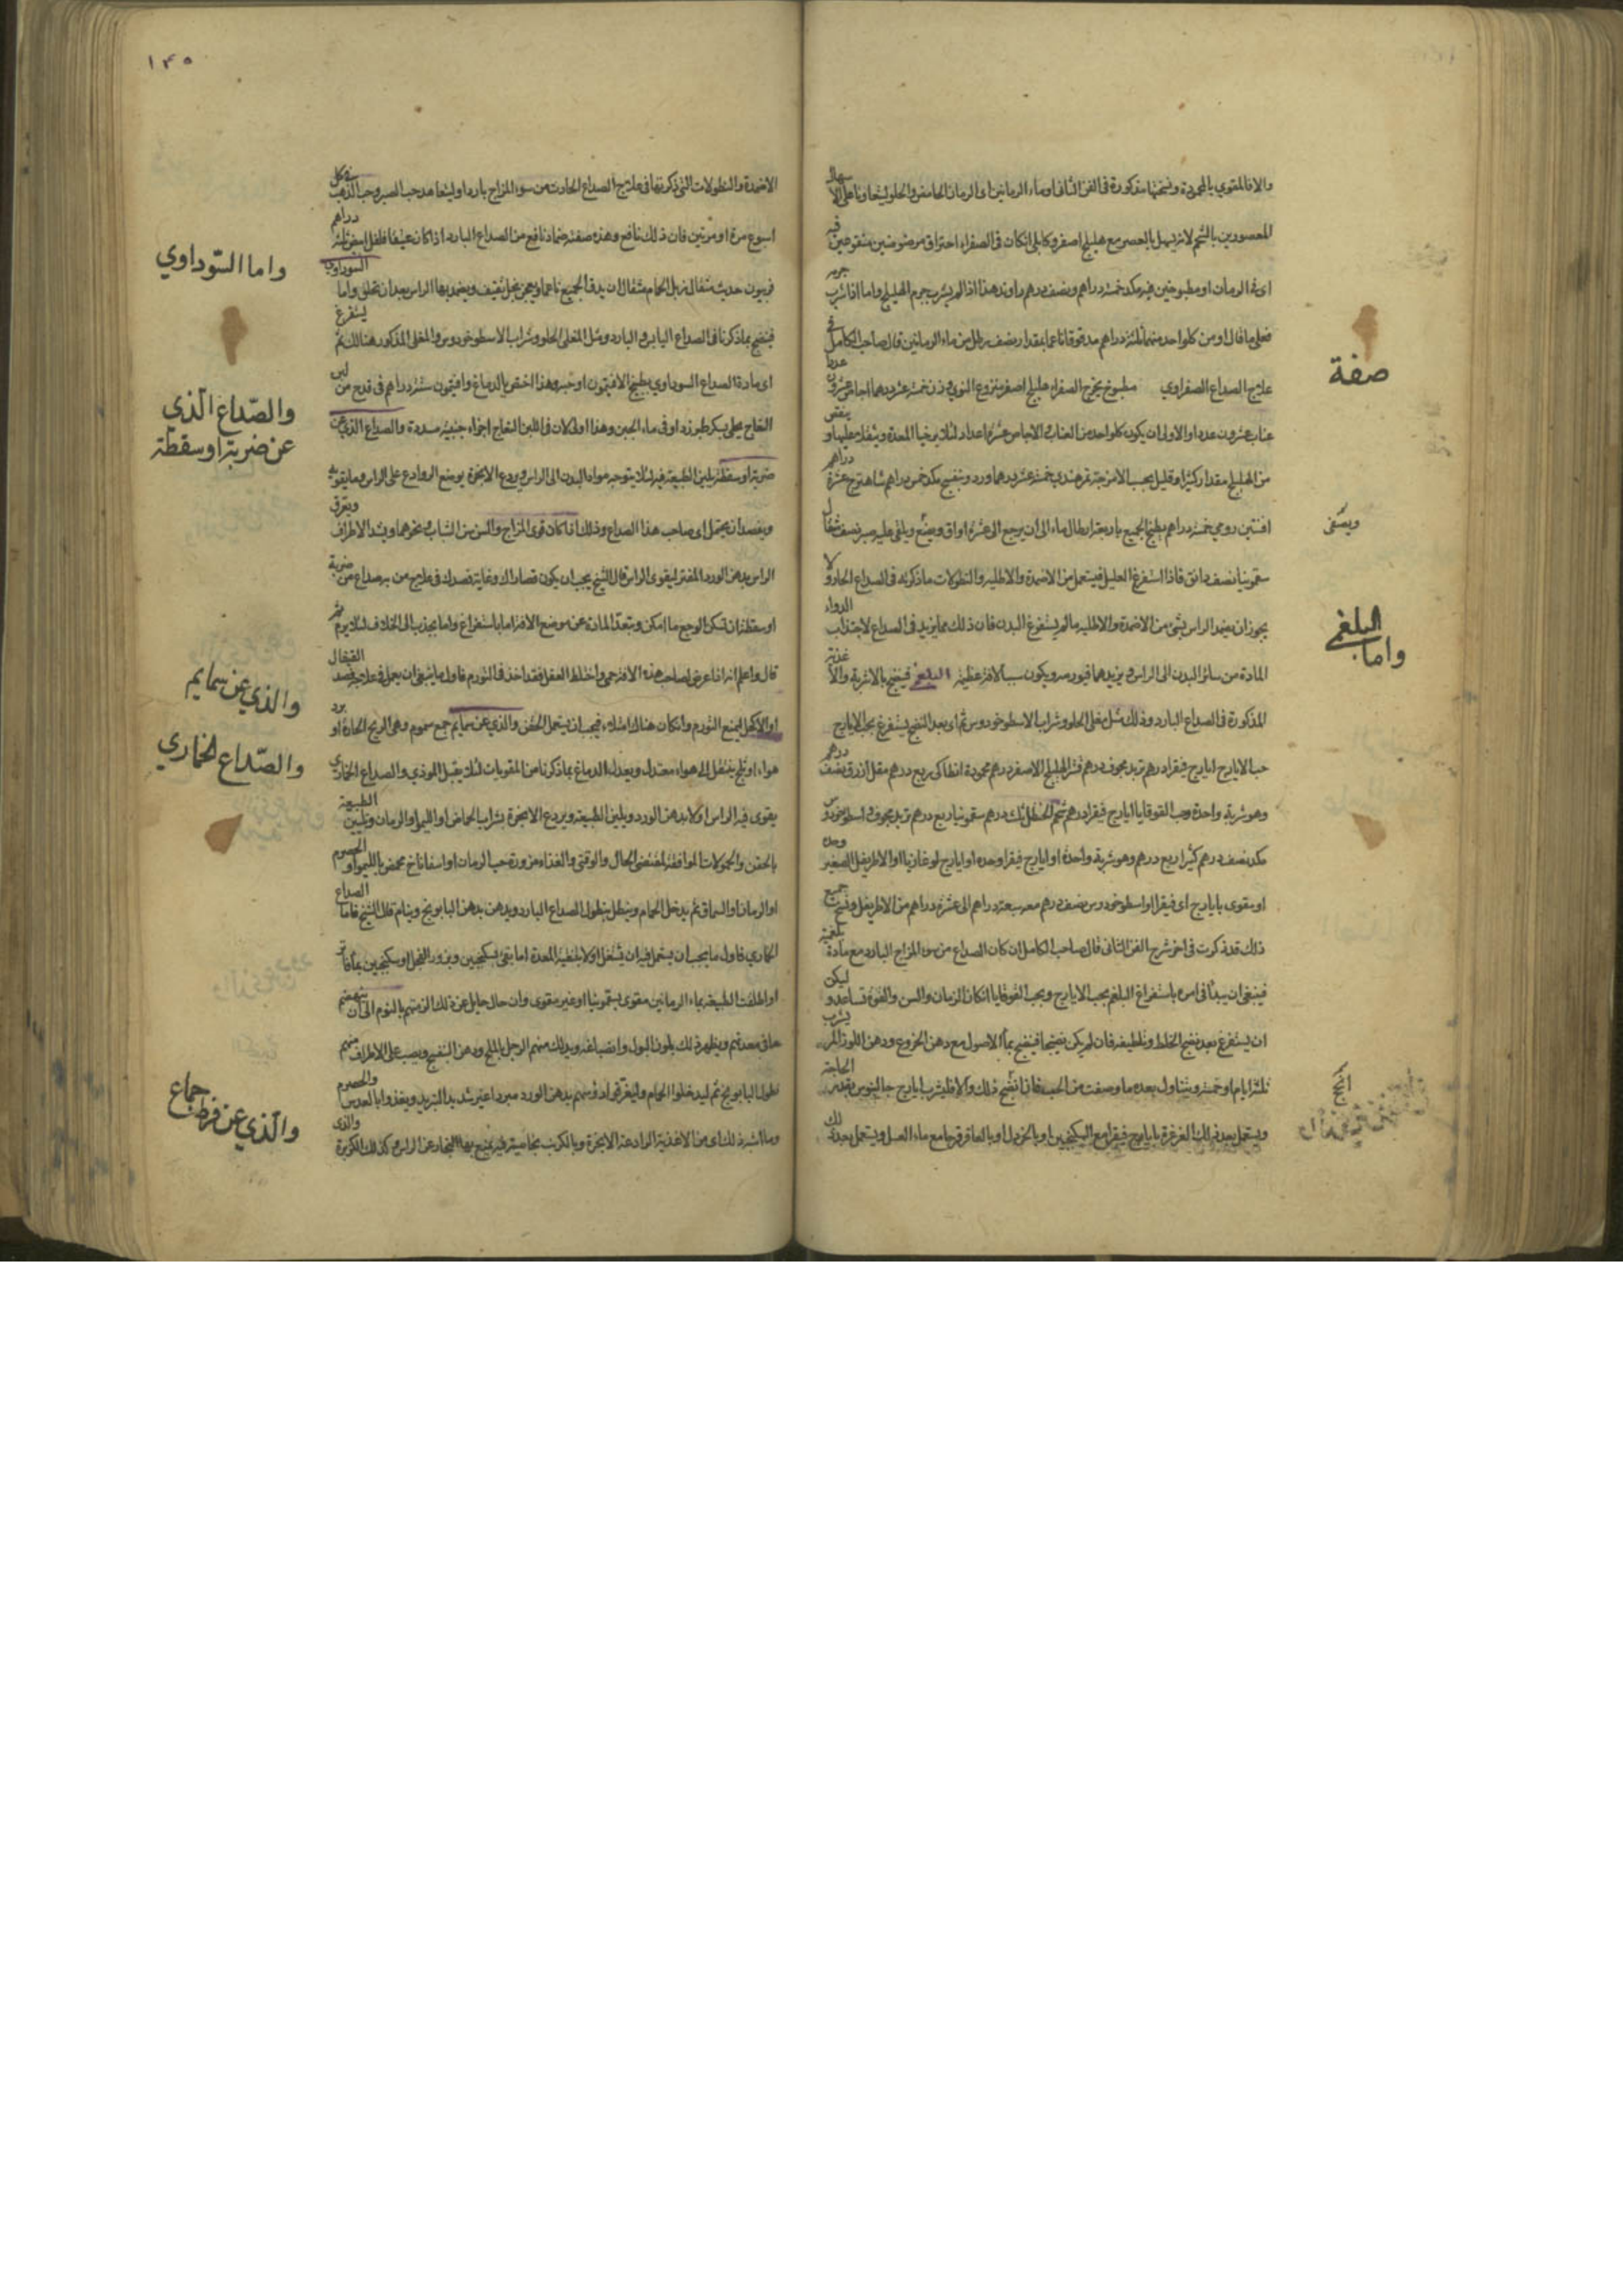 والا فالمقوي بالمحمودة ونسختها مذكورة فى الفن الثانى او ماء الرمانين اى الرمان الحامض والحلو ليتعاونا على الاسهال
المعصورين بالشحم لانه يسهل بالعصر مع هليلج اصفر وكابلى ان كان فى الصفراء احتراق مرضوضين منقوعين فيه
اى فى ماء الرمان او مطبوخين فيه مكد خمسة دراهم ونصف درهم راوند هذا اذا لم يشرب جرم الهليلج واما اذا شرب جرمه
فعلى ما قال او من كل واحد منهما ثلثة دراهم مدقوقا ناعما بمقدار نصف رطل من ماء الرمانين قال صاحب الكامل فى
صفة
علاج الصداع الصفراوي مطبوخ يخرج الصفراء هليلج اصفر منزوع النوى وزن خمسة عشر درهما اجاص عشرون عددا
عناب عشرون عددا والاولى ان يكون كل واحد من العناب والاجاص عشرة اعداد لئلا يرخيا المعدة ويثقلا عليها او ينقص
من الهليلج مقدارا كثيرا وقليل بحسب الامزجة تمر هندي خمسة عشر درهما ورد وبنفسج مكد خمس دراهم شاهترج عشرة دراهم
افسنتين رومي خمسة دراهم يطبخ الجميع باربعة ارطال ماء الى ان يرجع الى عشرة اواق ويصفى ويلقى عليه صبر نصف مثقال
ويسقى
سقمونيا نصف دانق فاذا استفرغ العليل فيستعمل من الاضمدة والاطلية والنطولات ما ذكرته فى الصداع الحار ولا
يجوز ان يضمد الراس بشئ من الاضمدة والاطلية ما لم يستفرغ البدن فان ذلك مما يزيد فى الصداع لاجتذاب الدواء
واما البلغمى
المادة من سائر البدن الى الراس ويزيدها فيورمه ويكون سببا لافة عظيمة البلغمى فينضج بالاشربة والاغذية
المذكورة فى الصداع البارد وذلك مثل مغلى الحلو وشراب الاسطوخودوس ثم اى بعد النضج يستفرغ بحب الايارج
حب الايارج ايارج فيقرا درهم تربد مجوف درهم قشر الهليلج الاصفر درهم محمودة انطاكى ربع درهم مقل ازرق نصف درهم
وهو شربة واحدة وحب القوقايا ايارج فيقرا درهم شحم الحنظل ثلث درهم سقمونيا ربع درهم تربد مجوف اسطوخودوس
مكد نصف درهم كثيرا ربع درهم وهو شربة واحدة او ايارج فيقرا وحده او ايارج لوغاذيا او الاطريفل الصغير وحده
او مقوى بايارج اى فيقرا او اسطوخودوس نصف درهم معه سبعة دراهم الى عشرة دراهم من الاطريفل ونسخ جميع
ذلك قد ذكرت فى اخر شرح الفن الثانى قال صاحب الكامل ان كان الصداع من سوء المزاج البارد مع مادة بلغمية
فينبغى ان يبدأ فى امره باستفراغ البلغم بحب الايارج وبحب القوقايا ان كان الزمان والسن والقوة تساعد وليكن
ان يستفرغ بعد نضج الخلط وتلطيفه فان لم يكن نضيجا فينضج بماء الاصول مع دهن الخروع ودهن اللوز المر يشرب
انضج
ثلثة ايام او خمسة ويتناول بعده ما وصفت من الحب فاذا نضج ذلك والا فليشرب ايارج جالينوس بقدر الحاجة
ويستعمل بعد ذلك الغرغرة بايارج فيقرا مع السكنجبين او بالخردل او بالعاقرقرحا مع ماء العسل ويستعمل بعد ذلك
١٣٥
الاضمدة والنطولات التى ذكرتها فى علاج الصداع الحادث من سوء المزاج باردا وليتعاهد حب الصبر وحب الذهب فى كل
اسبوع مرة او مرتين فان ذلك نافع وهذه صفة ضماد نافع من الصداع البارد اذا كان عتيقا فلفل ابيض ثلثة دراهم
واما السّوداوي
فربيون حديث مثقال زبل الحمام مثقالان يدق الجميع ناعما ويعجن بخل ثقيف ويضمد بها الراس بعد ان تحلق واما السوداوى
فينضج بما ذكرنا فى الصداع اليابس والبارد ومثل المغلى الحلو وشراب الاسطوخودوس والمغلى المذكور هنالك ثم يستفرغ
اى مادة الصداع السوداوي بطبيخ الافتيمون او حبه وهذا اخص بالدماغ وافتيمون ستة دراهم فى قدح من لبن
والصّداع الّذى عن ضربة او سقطة
النعاج يحلى بسكر طبرزد او فى ماء الجبن وهذا اولى لان فى اللبن النعاج اجزاء جبنية مسددة والصداع الذى عن
ضربة او سقطة يلين الطبيعة فيه لئلا يتوجه مواد البدن الى الراس ويردع الابخرة بوضع الروادع على الراس وما يقويه
ويفصد ان يحتمل اى صاحب هذا الصداع وذلك اذا كان قوى المزاج والسن سن الشباب ونحوهما ويشد الاطراف ويعرق
الراس بدهن الورد المفتر ليقوى الراس قال الشيخ يجب ان يكون قصاراك وغاية قصدك فى علاج من به صداع من ضربة
او سقطة ان تسكن الوجع ما امكن وتبعد المادة عن موضع الافة اما باستفراغ واما بجذب الى الخلاف لئلا يرم ثم
والذي عن سمايم
قال واعلم انه اذا عرض لصاحب هذه الافة حمى واختلط العقل فقد اخذ فى التورم فاول ما ينبغى ان يعمل فى علاجه فصد القيفال
او الاكحل ليمنع التورم وان كان هناك امتلاء فيجب ان يستعمل الحقن والذي عن سمايم جمع سموم وهى الريح الحارة او برد
والصّداع الخماري
هواء او ثلج ينقل الى هواء معتدل ويعدل الدماغ بما ذكرنا من المقويات لئلا يقبل الموذي والصداع الخمارى
يقوى فيه الراس اولا بدهن الورد ويلين الطبيعة ويردع الابخرة بشراب الحماض او الليمو او الرمان وتليين الطبيعة
بالحقن والحمولات الموافقة لمقتضى الحال والوقت والغذاء مزورة حب الرمان او اسفاناخ محمض بالليمو او الحصرم
او الرمان او السماق ثم يدخل الحمام وينطل بنطول الصداع البارد ويدهن بدهن البابونج وينام قال الشيخ فاما الصداع
الخماري فاول ما يجب ان يستعمل فيه ان يشتغل اولا بتنقية المعدة اما بقئ بسكنجبين وبزور الفجل او سكنجبين بماء فاتر
او اطلقت الطبيعة بماء الرمانين مقوى بسقمونيا او غير مقوى وان حال حايل عن ذلك الزمتهم بالنوم الى ان ينهضم
ما فى معدتهم ويظهر ذلك بلون البول وانصباغه ويدلك منهم الرجل بالملح ودهن البنفسج ويصب على الاطراف منهم
والّذي عن فرط جماع
نطول البابونج ثم ليدخلوا الحمام وليغرق رؤسهم بدهن الورد مبردا غير شديد التبريد ويغذوا بالعدس والحصرم
وما اشبه ذلك اى من الاغذية الرادعة الابخرة وبالكرنب بخاصية فيه يمنع بها البخار عن الراس وكذلك الكزبرة والذى